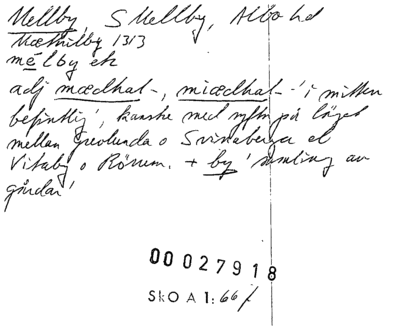 Mellby, S Mellby, Albo hd
Mæthilby 1313
mélby ek
adj mædhal-, miædhal- 'i mitten
befintlig', kanske med syftn på läget
mellan Grevlunda o Svinaberga el
Vitaby o Rörum. + by 'samling av
gårdar'
00027918
SkO A 1:66/